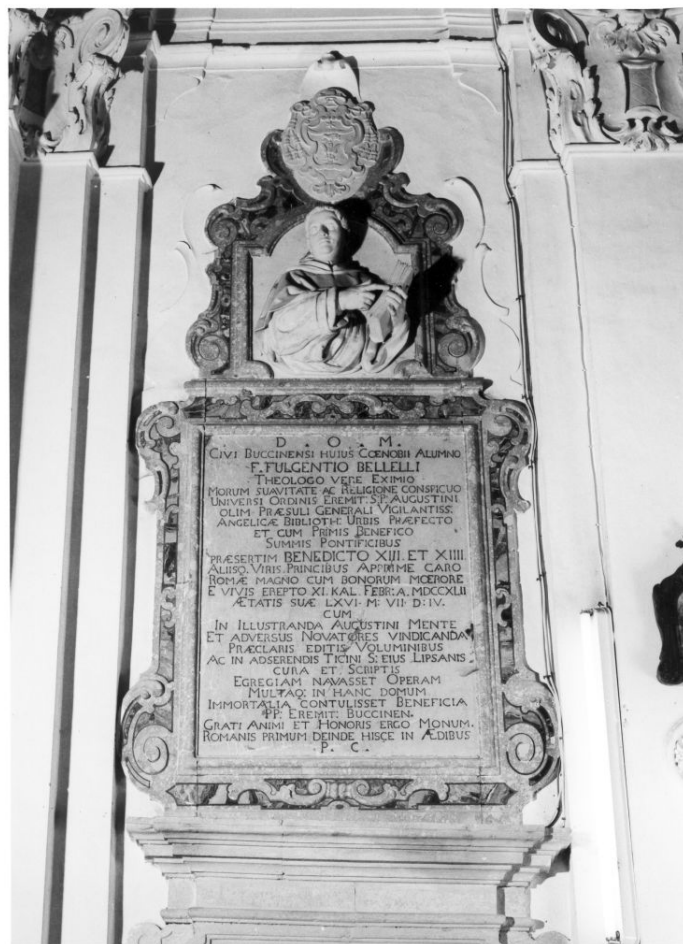 D. O. M.
CIVI BUCCINENSI HUIUS CŒNOBII ALUMNO
F. FULGENTIO BELLELLI
THEOLOGO VERE EXIMIO
MORUM SUAVITATE AC RELIGIONE CONSPICUO
UNIVERSI ORDINIS EREMIT. S.P. AUGUSTINI
OLIM PRÆSULI GENERALI VIGILANTISS.
ANGELICÆ BIBLIOTH: URBIS PRÆFECTO
ET CUM PRIMIS BENEFICO
SUMMIS PONTIFICIBUS
PRÆSERTIM BENEDICTO XIII. ET XIIII.
ALIISQ. VIRIS PRINCIBUS APPRIME CARO
ROMÆ MAGNO CUM BONORUM MŒRORE
E VIVIS EREPTO XI. KAL. FEBR: A. MDCCXLII
ÆTATIS SUÆ LXVI. M: VII. D: IV.
CUM
IN ILLUSTRANDA AUGUSTINI MENTE
ET ADVERSUS NOVATORES VINDICANDA
PRÆCLARIS EDITIS VOLUMINIBUS
AC IN ADSERENDIS TICINI S: EIUS LIPSANIS
CURA ET SCRIPTIS
EGREGIAM NAVASSET OPERAM
MULTAQ: IN HANC DOMUM
IMMORTALIA CONTULISSET BENEFICIA
PP: EREMIT: BUCCINEN.
GRATI ANIMI ET HONORIS ERGO MONUM.
ROMANIS PRIMUM DEINDE HISCE IN ÆDIBUS
P. C.